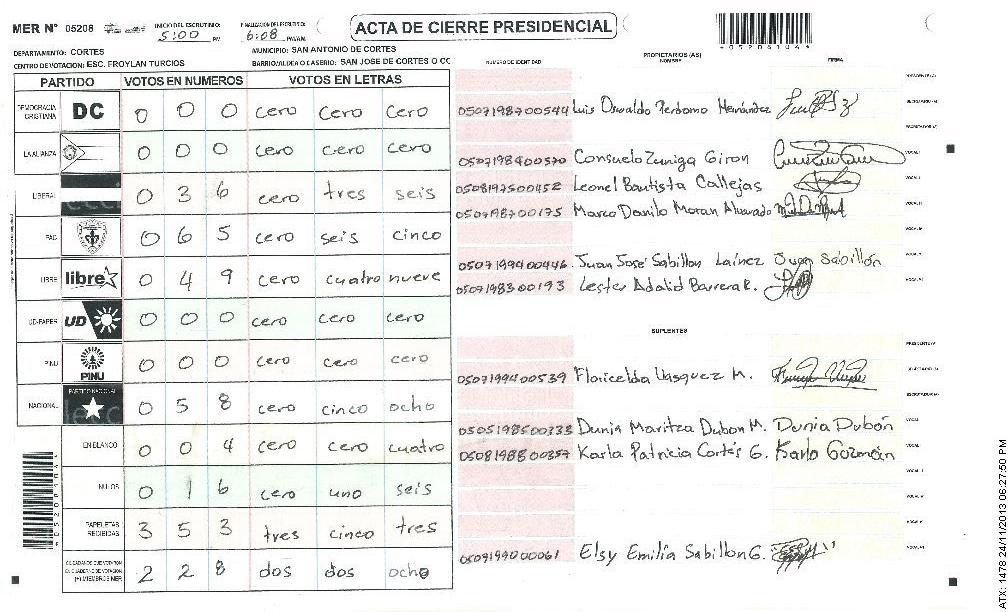 MER Nº 05208 INICIO DEL ESCRUTINIO: 5:00 PM FINALIZACION DEL ESCRUTINIO: 6:08 PM/AM. ACTA DE CIERRE PRESIDENCIAL
DEPARTAMENTO: CORTES MUNICIPIO: SAN ANTONIO DE CORTES
CENTRO DE VOTACION: ESC. FROYLAN TURCIOS BARRIO/ALDEA O CASERIO: SAN JOSE DE CORTES O CC
PARTIDO VOTOS EN NUMEROS VOTOS EN LETRAS
DEMOCRACIA CRISTIANA DC 0 0 0 cero cero cero
LA ALIANZA 0 0 0 cero cero cero
LIBERAL 0 3 6 cero tres seis
PAC 0 6 5 cero seis cinco
LIBRE libre 0 4 9 cero cuatro nueve
UD-FAPER UD 0 0 0 cero cero cero
PINU PINU 0 0 0 cero cero cero
NACIONAL PARTIDO NACIONAL 0 5 8 cero cinco ocho
EN BLANCO 0 0 4 cero cero cuatro
NULOS 0 1 6 cero uno seis
PAPELETAS RECIBIDAS 3 5 3 tres cinco tres
CIUDADANOS QUE VOTARON EN CUADERNO DE VOTACION (+) MIEMBROS MER 2 2 8 dos dos ocho
NUMERO DE IDENTIDAD PROPIETARIOS (AS) NOMBRE FIRMA
PRESIDENTE(A)
0507198700544 Luis Oswaldo Perdomo Hernández SECRETARIO(A)
0507198400570 Consuelo Zuniga Giron VOCAL I
0508197500452 Leonel Bautista Callejas
0507198700175 Marco Danilo Moran Alvarado
0507199400446 Juan José Sabillon Laínez Juan Sabillón
0507198300193 Lester Adalid Barrera R.
SUPLENTES
0507199400539 Floricelda Vasquez M.
0505198500333 Dunia Maritza Dubon M. Dunia Dubón
0508198800357 Karla Patricia Cortés G. Karla Guzmán
0509199000061 Elsy Emilia Sabillon G.
ATX: 1478 24/11/2013 06:27:50 PM